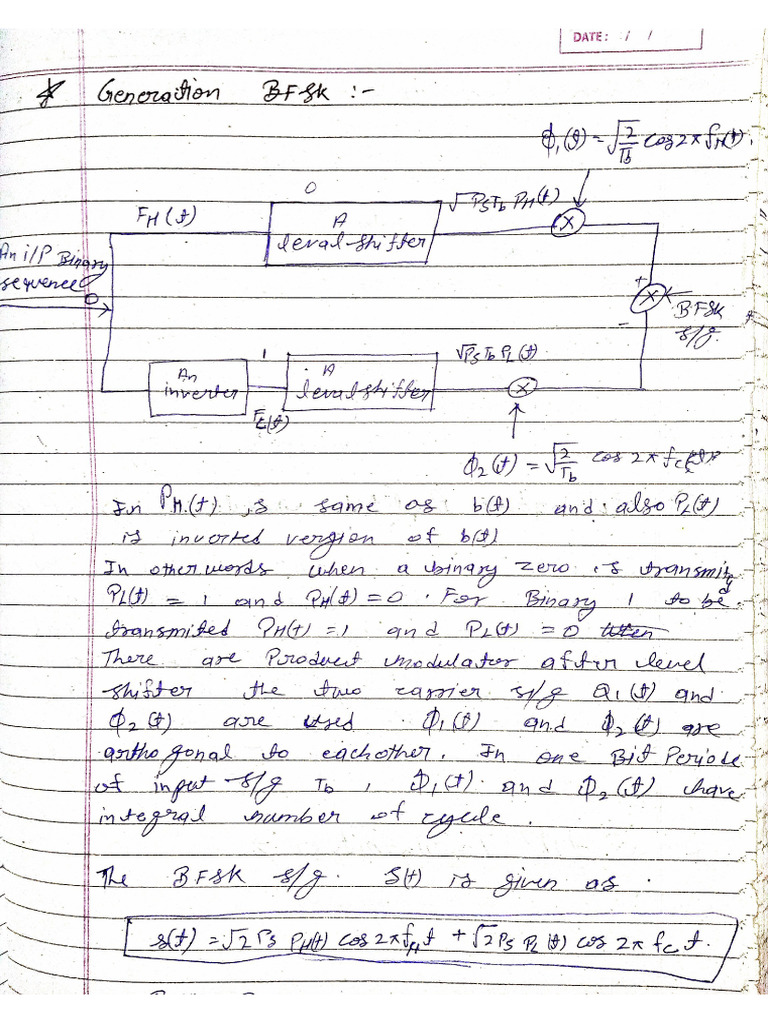 DATE: / /
* Generation BFSK :-
ϕ₁(t) = √2/Tb cos 2π fH(t).
0
FH(t)
A level-shifter
√PsTb PH(t)
×
An i/P Binary
sequence
0
+
×
BFSK
s/g.
-
An inverter
1
FL(t)
A level shifter
√PsTb PL(t)
×
ϕ₂(t) = √2/Tb cos 2π fc
In PH(t) is same as b(t) and also PL(t)
is inverted version of b(t)
In other words when a binary zero is transmited
PL(t) = 1 and PH(t) = 0 . For Binary 1 to be
transmited PH(t) = 1 and PL(t) = 0
There are Product modulator after level
shifter the two carrier s/g Q1(t) and
ϕ2(t) are used ϕ1(t) and ϕ2(t) are
orthogonal to eachother. In one Bit Periode
of input s/g Tb , ϕ1(t) and ϕ2(t) have
integral number of cycle .
The BFSK s/g. S(t) is given as .
s(t) = √2Ps PH(t) cos 2π fH t + √2Ps PL(t) cos 2π fc t.